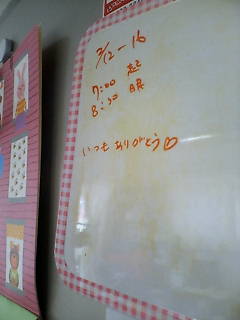 2/12-16
7:00 起
8:30 眠
いつも ありがとう♡